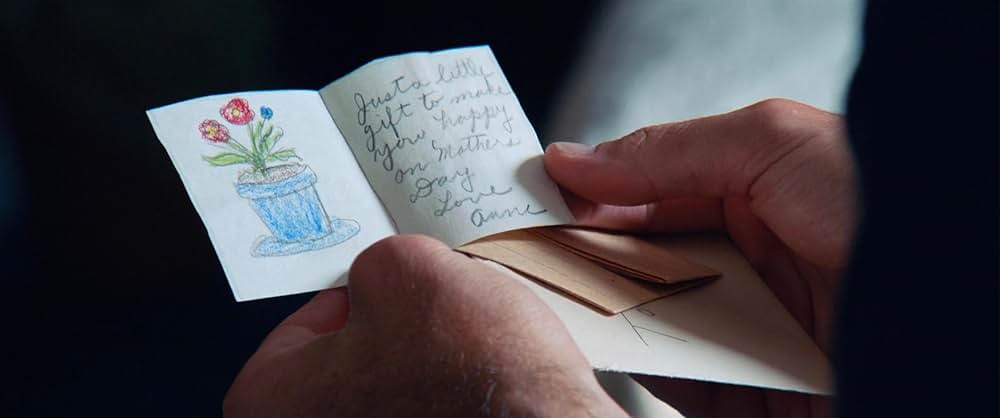 Just a little
gift to make
you happy
on Mothers
Day
Love
Anne